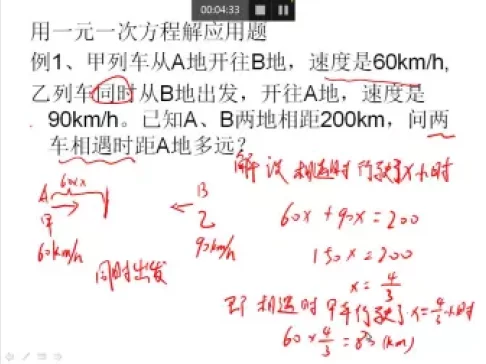 00:04:33
用一元一次方程解应用题
例1、甲列车从A地开往B地，速度是60km/h,
乙列车同时从B地出发，开往A地，速度是
90km/h。已知A、B两地相距200km，问两
车相遇时距A地多远?
解 设 相遇时行驶了x小时
60x
A
B
甲
乙
60km/h
90km/h
同时出发
60x+90x=200
150x=200
x=4/3
即 相遇时 甲车行驶了x=4/3小时
60×4/3= (km)